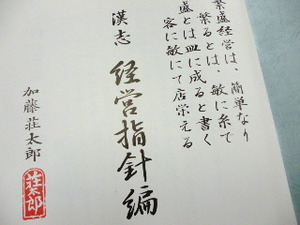 繁盛経営は、簡単なり
繁るとは、敏に糸で
盛とは皿に成ると書く
客に敏にて店栄える
漢志 経営指針編
加藤荘太郎
荘太郎